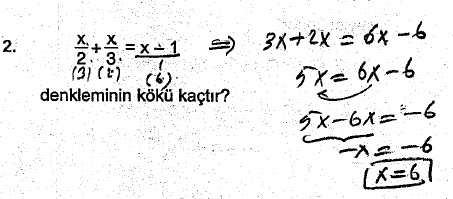 2. x/2 + x/3 = x - 1 ⇒ 3x + 2x = 6x - 6
(3) (2) (6)
5x = 6x - 6
denkleminin kökü kaçtır?
5x - 6x = -6
-x = -6
x = 6